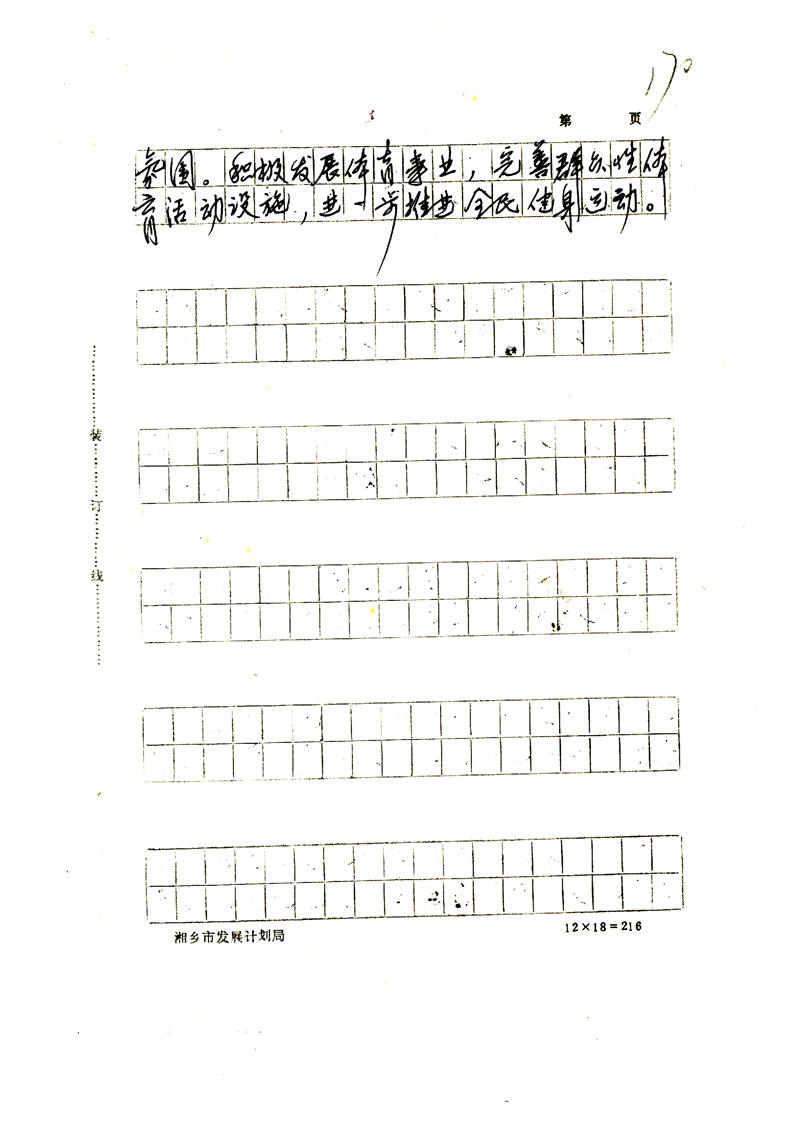 170
第 页
氛围。积极发展体育事业，完善群众性体
育活动设施，进一步推进全民健身运动。
装
订
线
湘乡市发展计划局
12×18=216